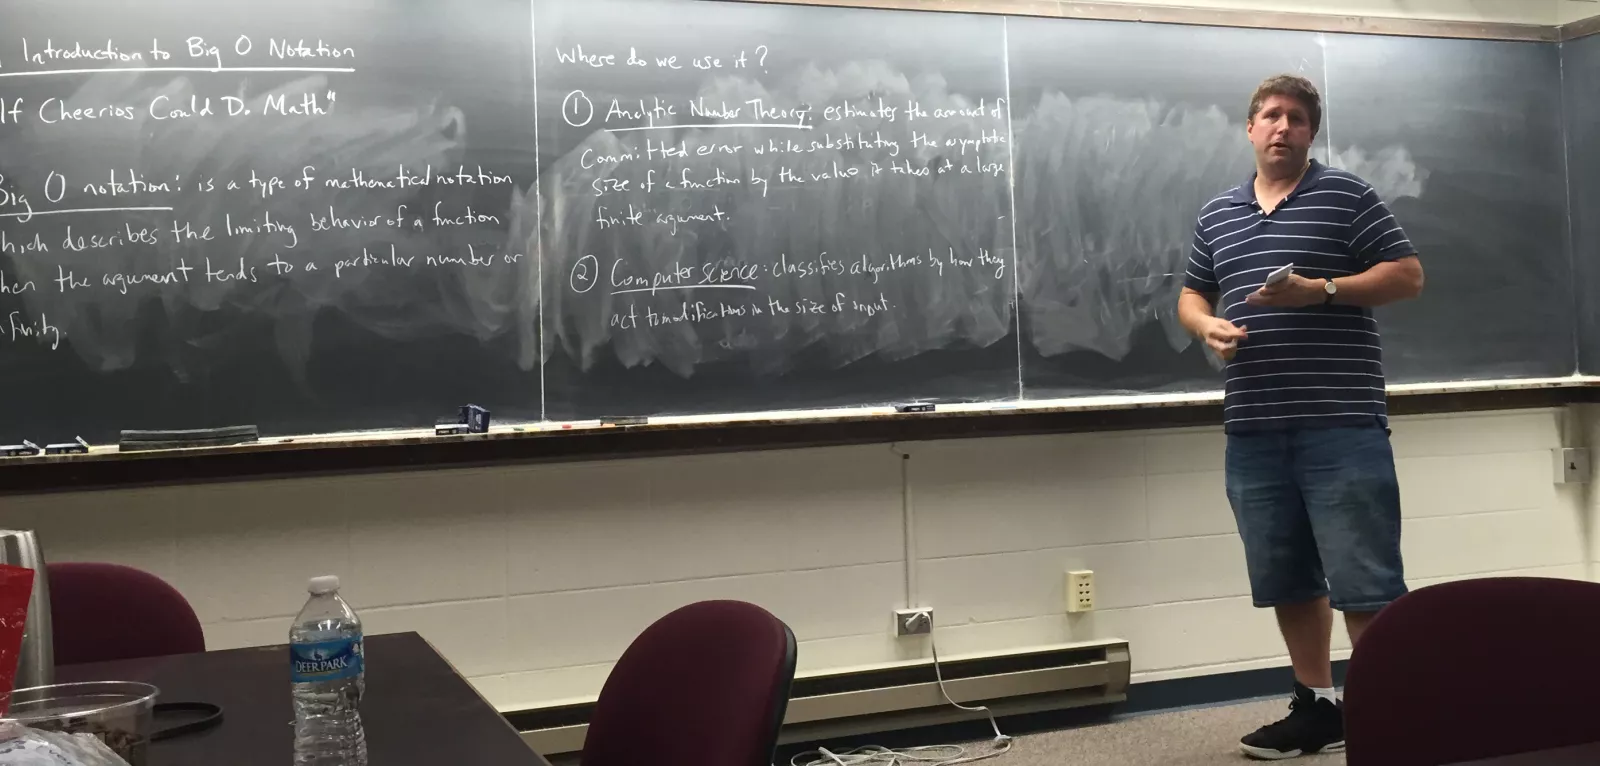 Introduction to Big O Notation
If Cheerios Could Do Math"
Big O notation: is a type of mathematical notation
which describes the limiting behavior of a function
when the argument tends to a particular number or
infinity.
Where do we use it?
① Analytic Number Theory: estimates the amount of
Committed error while substituting the asymptotic
size of a function by the value it takes at a large
finite argument.
② Computer Science: classifies algorithms by how they
act to modifications in the size of input.
DEER PARK